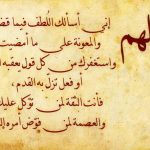 اللهم
إني أسألك اللطف فيما قض
والمعونة على ما أمضيت
وأستغفرك من كل قول يعقبه ا
أو فعل تزل به القدم ،
فأنت الثقة لمن توكل عليك
والعصمة لمن فوّض أمره إل